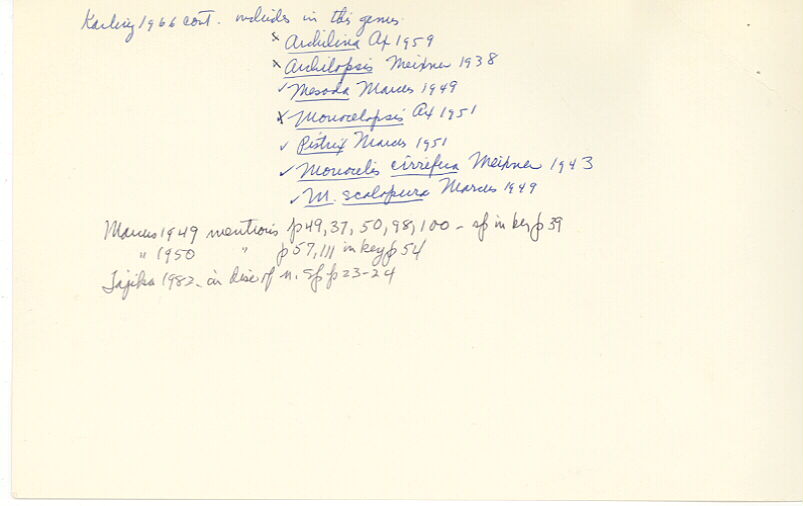 Karling 1966 cont. includes in this genus
x Archilina Ax 1959
x Archilopsis Meixner 1938
✓ Mesoda Marcus 1949
x Monocelopsis Ax 1951
✓ Pistrix Marcus 1951
✓ Monocelis cirrifera Meixner 1943
✓ M. scalopura Marcus 1949
Marcus 1949 mentions p49, 37, 50, 98, 100 - sp in key p 39
" 1950 " p 57, 111 in key p 54
Tajika 1982 - in disc of n. sp p 23-24